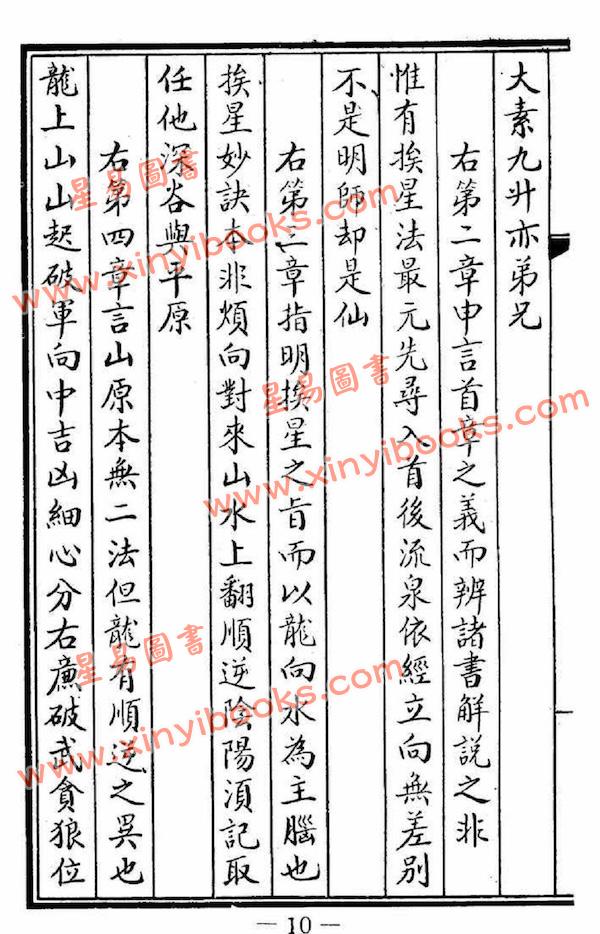 大素九廾亦弟兄
右第二章申言首章之義而辨諸書解說之非
惟有挨星法最元先尋入首後流泉依經立向無差別
不是明師却是仙
右第三章指明挨星之旨而以龍向水為主腦也
挨星妙訣本非煩向對來山水上翻順逆陰陽湏記取
任他深谷與平原
右第四章言山原本無二法但龍有順逆之異也
龍上山山起破軍向中吉凶細心分右廉破武貪狼位
— 10 —
星易圖書
www.xinyibooks.com
星易圖書
www.xinyibooks.com
星易圖書
www.xinyibooks.com